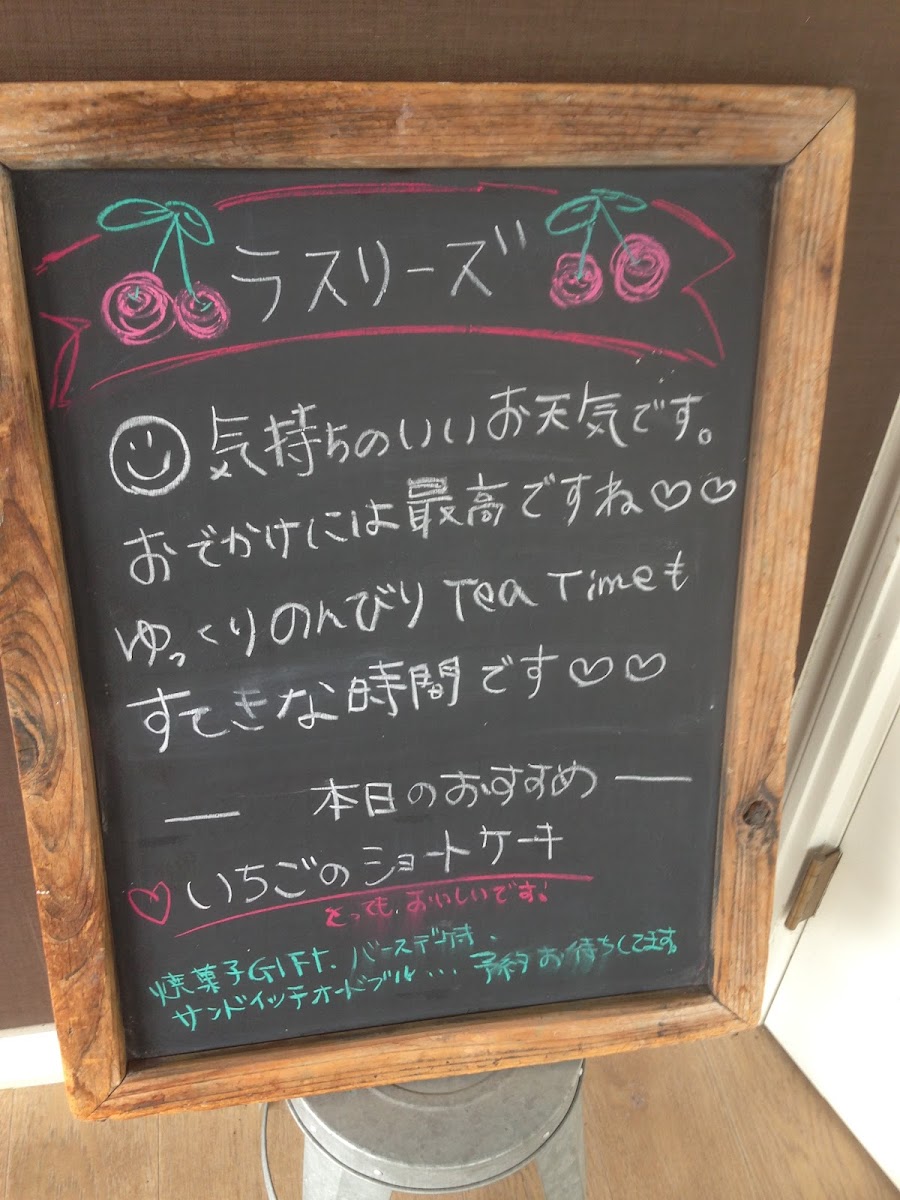 ラスリーズ
気持ちのいいお天気です。
おでかけには最高ですね♡♡
ゆっくりのんびりTea Timeも
すてきな時間です♡♡
― 本日のおすすめ ―
♡いちごのショートケーキ
とっても、おいしいです!
焼菓子GIFT. バースデイ
サンドイッチオードブル... 予約お待ちしてます。